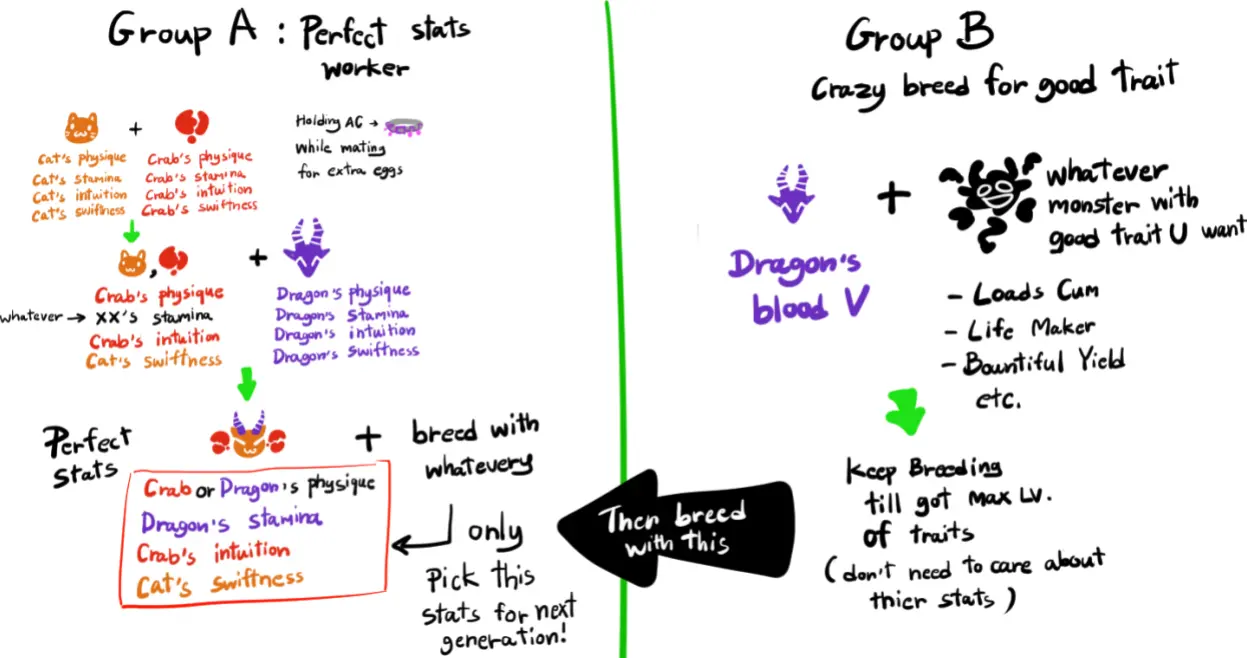 Group A : Perfect stats
worker
Cat's physique
Cat's stamina
Cat's intuition
Cat's swiftness
+
Crab's physique
Crab's stamina
Crab's intuition
Crab's swiftness
Holding AC →
while mating
for extra eggs
,
Crab's physique
whatever → XX's stamina
Crab's intuition
Cat's swiftness
+
Dragon's physique
Dragon's stamina
Dragon's intuition
Dragon's swiftness
Perfect
stats
Crab or Dragon's physique
Dragon's stamina
Crab's intuition
Cat's swiftness
+
breed with
whatevery
only
Pick this
stats for next
generation!
Group B
Crazy breed for good trait
Dragon's
blood V
+
whatever
monster with
good trait U want
- Loads Cum
- Life Maker
- Bountiful Yield
etc.
Keep Breeding
till got Max LV.
of traits
(don't need to care about
thier stats)
Then breed
with this